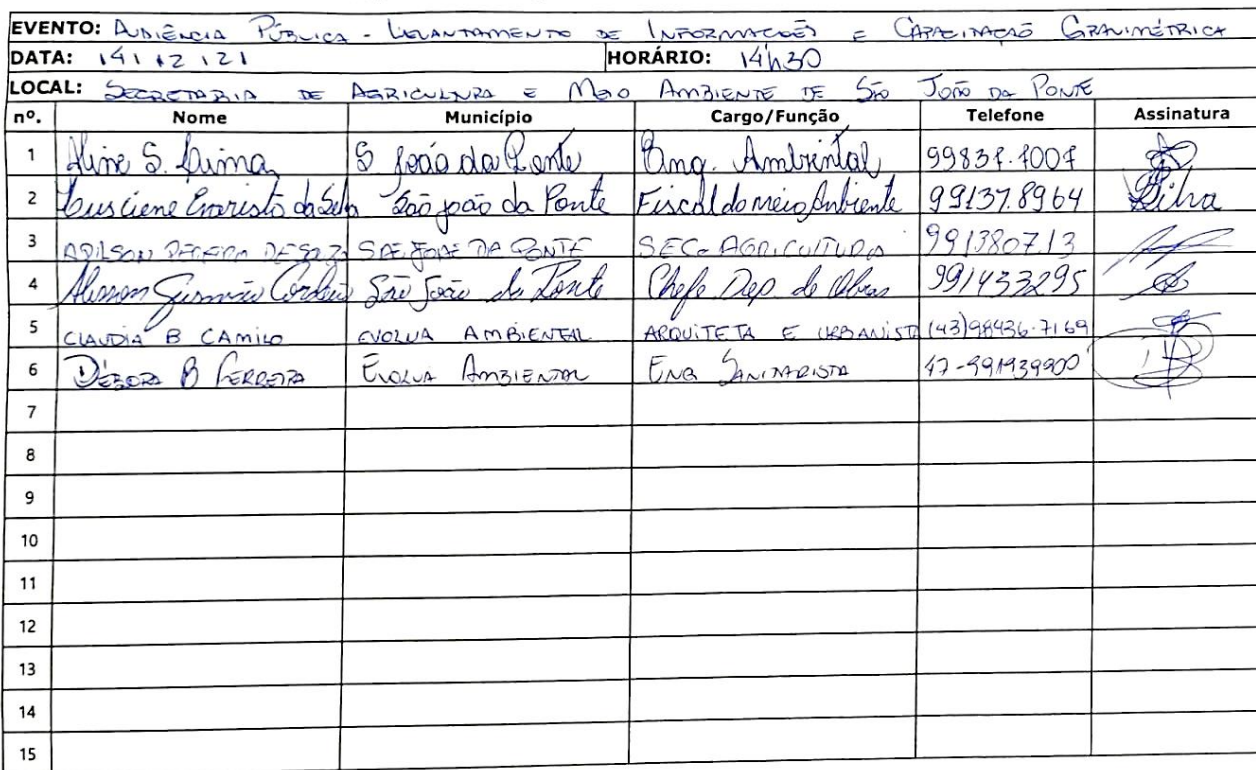 EVENTO: AUDIÊNCIA PÚBLICA - LEVANTAMENTO DE INFORMAÇÕES E CAPACITAÇÃO GRAVIMÉTRICA
DATA: 14 / 12 / 21 HORÁRIO: 14h30
LOCAL: SECRETARIA DE AGRICULTURA E MEIO AMBIENTE DE SÃO JOÃO DA PONTE
nº. Nome Município Cargo/Função Telefone Assinatura
1 Aline S. Lima S. João da Ponte Eng. Ambiental 99837.7007
2 Evaristo da Silva São João da Ponte Fiscal do meio Ambiente 99137.8964 Silva
3 ADILSON PEREIRA DE SOUZA DA PONTE SEC. AGRICULTURA 991380713
4 São João da Ponte Chefe Dep. de Obras 991433295
5 CLAUDIA B CAMILO EVOLUA AMBIENTAL ARQUITETA E URBANISTA (43)98436.7169
6 DÉBORA B FERREIRA EVOLUA AMBIENTAL ENG SANITARISTA 47-991939900
7
8
9
10
11
12
13
14
15